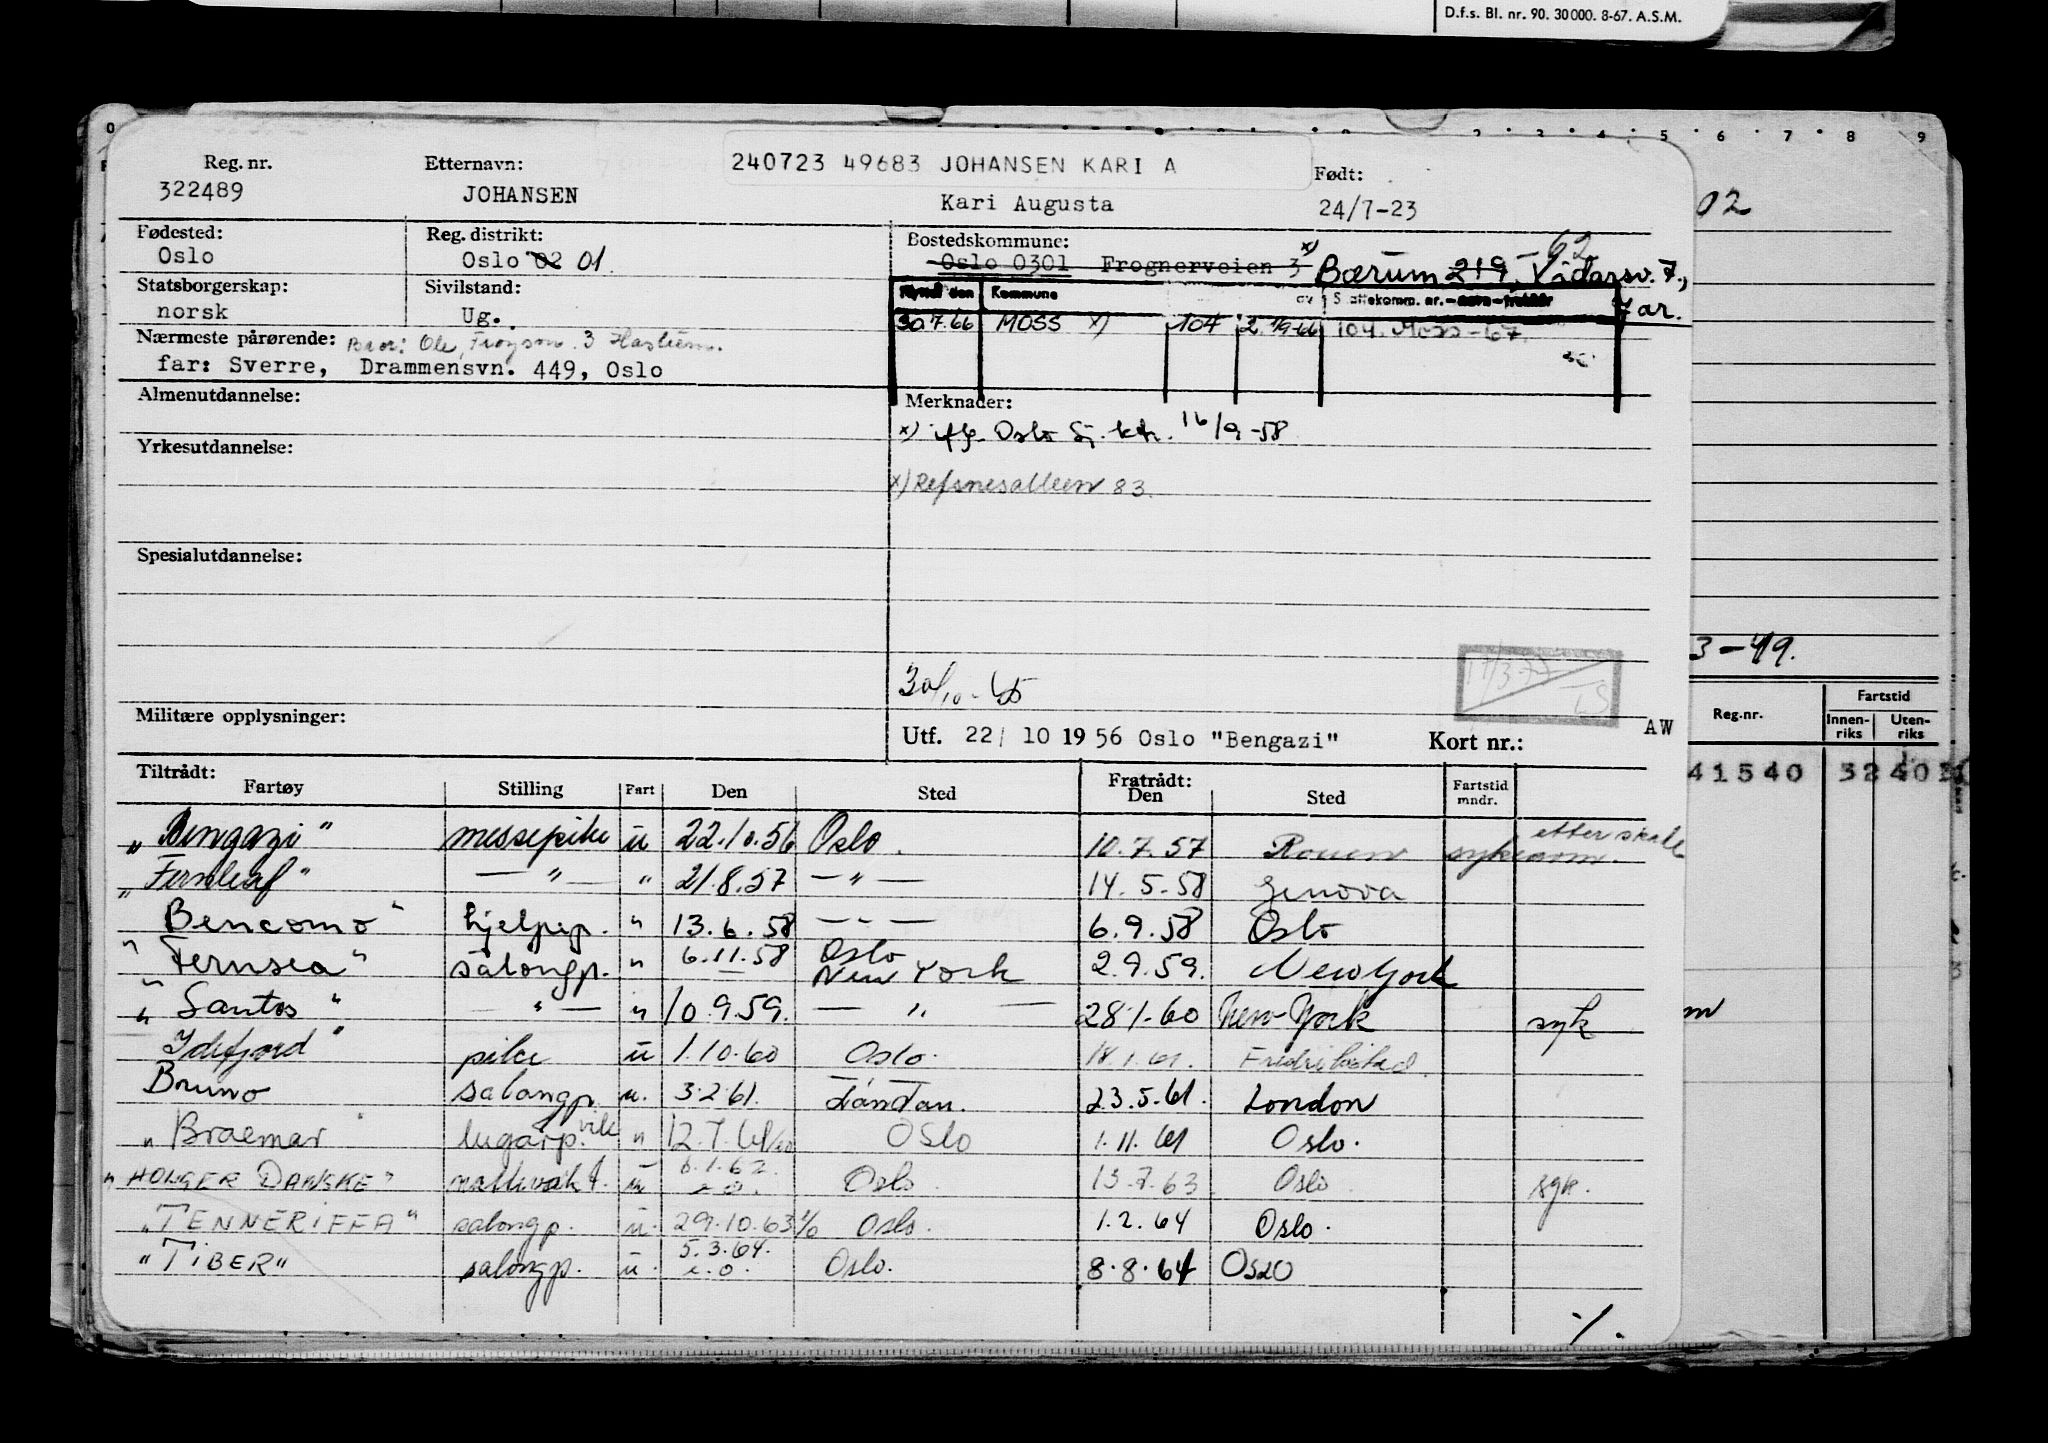 D.f.s. Bl. nr. 90. 30000. 8-67. A.S.M.
Reg. nr. Etternavn: 240723 49683 JOHANSEN KARI A Født:
322489 JOHANSEN Kari Augusta 24/7-23
02
Fødested: Reg. distrikt: Bostedskommune:
Oslo Oslo 02 01. Oslo 0301 Frognerveien 3 x) Bærum 219, -62 Vidarsv. 7.,
Jar.
Statsborgerskap: Sivilstand: Flyttet den Kommune Skattekomm. nr.
norsk Ug. 30.7.66 MOSS x) 104 2. 104. Moss-67.
Nærmeste pårørende: Bror: Ole, 3
far: Sverre, Drammensvn. 449, Oslo
Almenutdannelse: Merknader:
x) iflg. Oslo Sj. ktr. 16/9-58
Yrkesutdannelse:
x) Refsnesalleen 83.
Spesialutdannelse:
3-49.
30/10-65
Militære opplysninger:
Utf. 22/ 10 1956 Oslo "Bengazi" Kort nr.: AW
Reg.nr. Fartstid
Innenriks Utenriks
41540 32 40
Tiltrådt: Fratrådt:
Fartøy Stilling Fart Den Sted Den Sted Fartstid mndr.
"Bengazi" messepike u 22.10.56 Oslo. 10.7.57 Rouen etter skade
"Fernleaf" — " — " 21.8.57 — " — 14.5.58 Genova
Bencomo" hjelpep. " 13.6.58 — " — 6.9.58 Oslo
"Fernsea" salongp. " 6.11.58 Oslo New York 2.9.59. New York
"Santos" — " — " 10.9.59. — " — 28.1.60 New-York syk
Idefjord" pike u 1.10.60 Oslo. 18.1.61. Fredrikstad.
Bruno salongp. u. 3.2.61. 23.5.61. London
"Braemar" lugarp. " 12.7.61 Oslo 1.11.61 Oslo.
"HOLGER DANSKE" nattevakt. u 6.1.62. Oslo 13.7.63 Oslo syk.
"TENNERIFFA" salongp. u. 29.10.63 Oslo. 1.2.64 Oslo.
"TIBER" salongp. u. 5.3.64. Oslo. 8.8.64 OSLO
./.